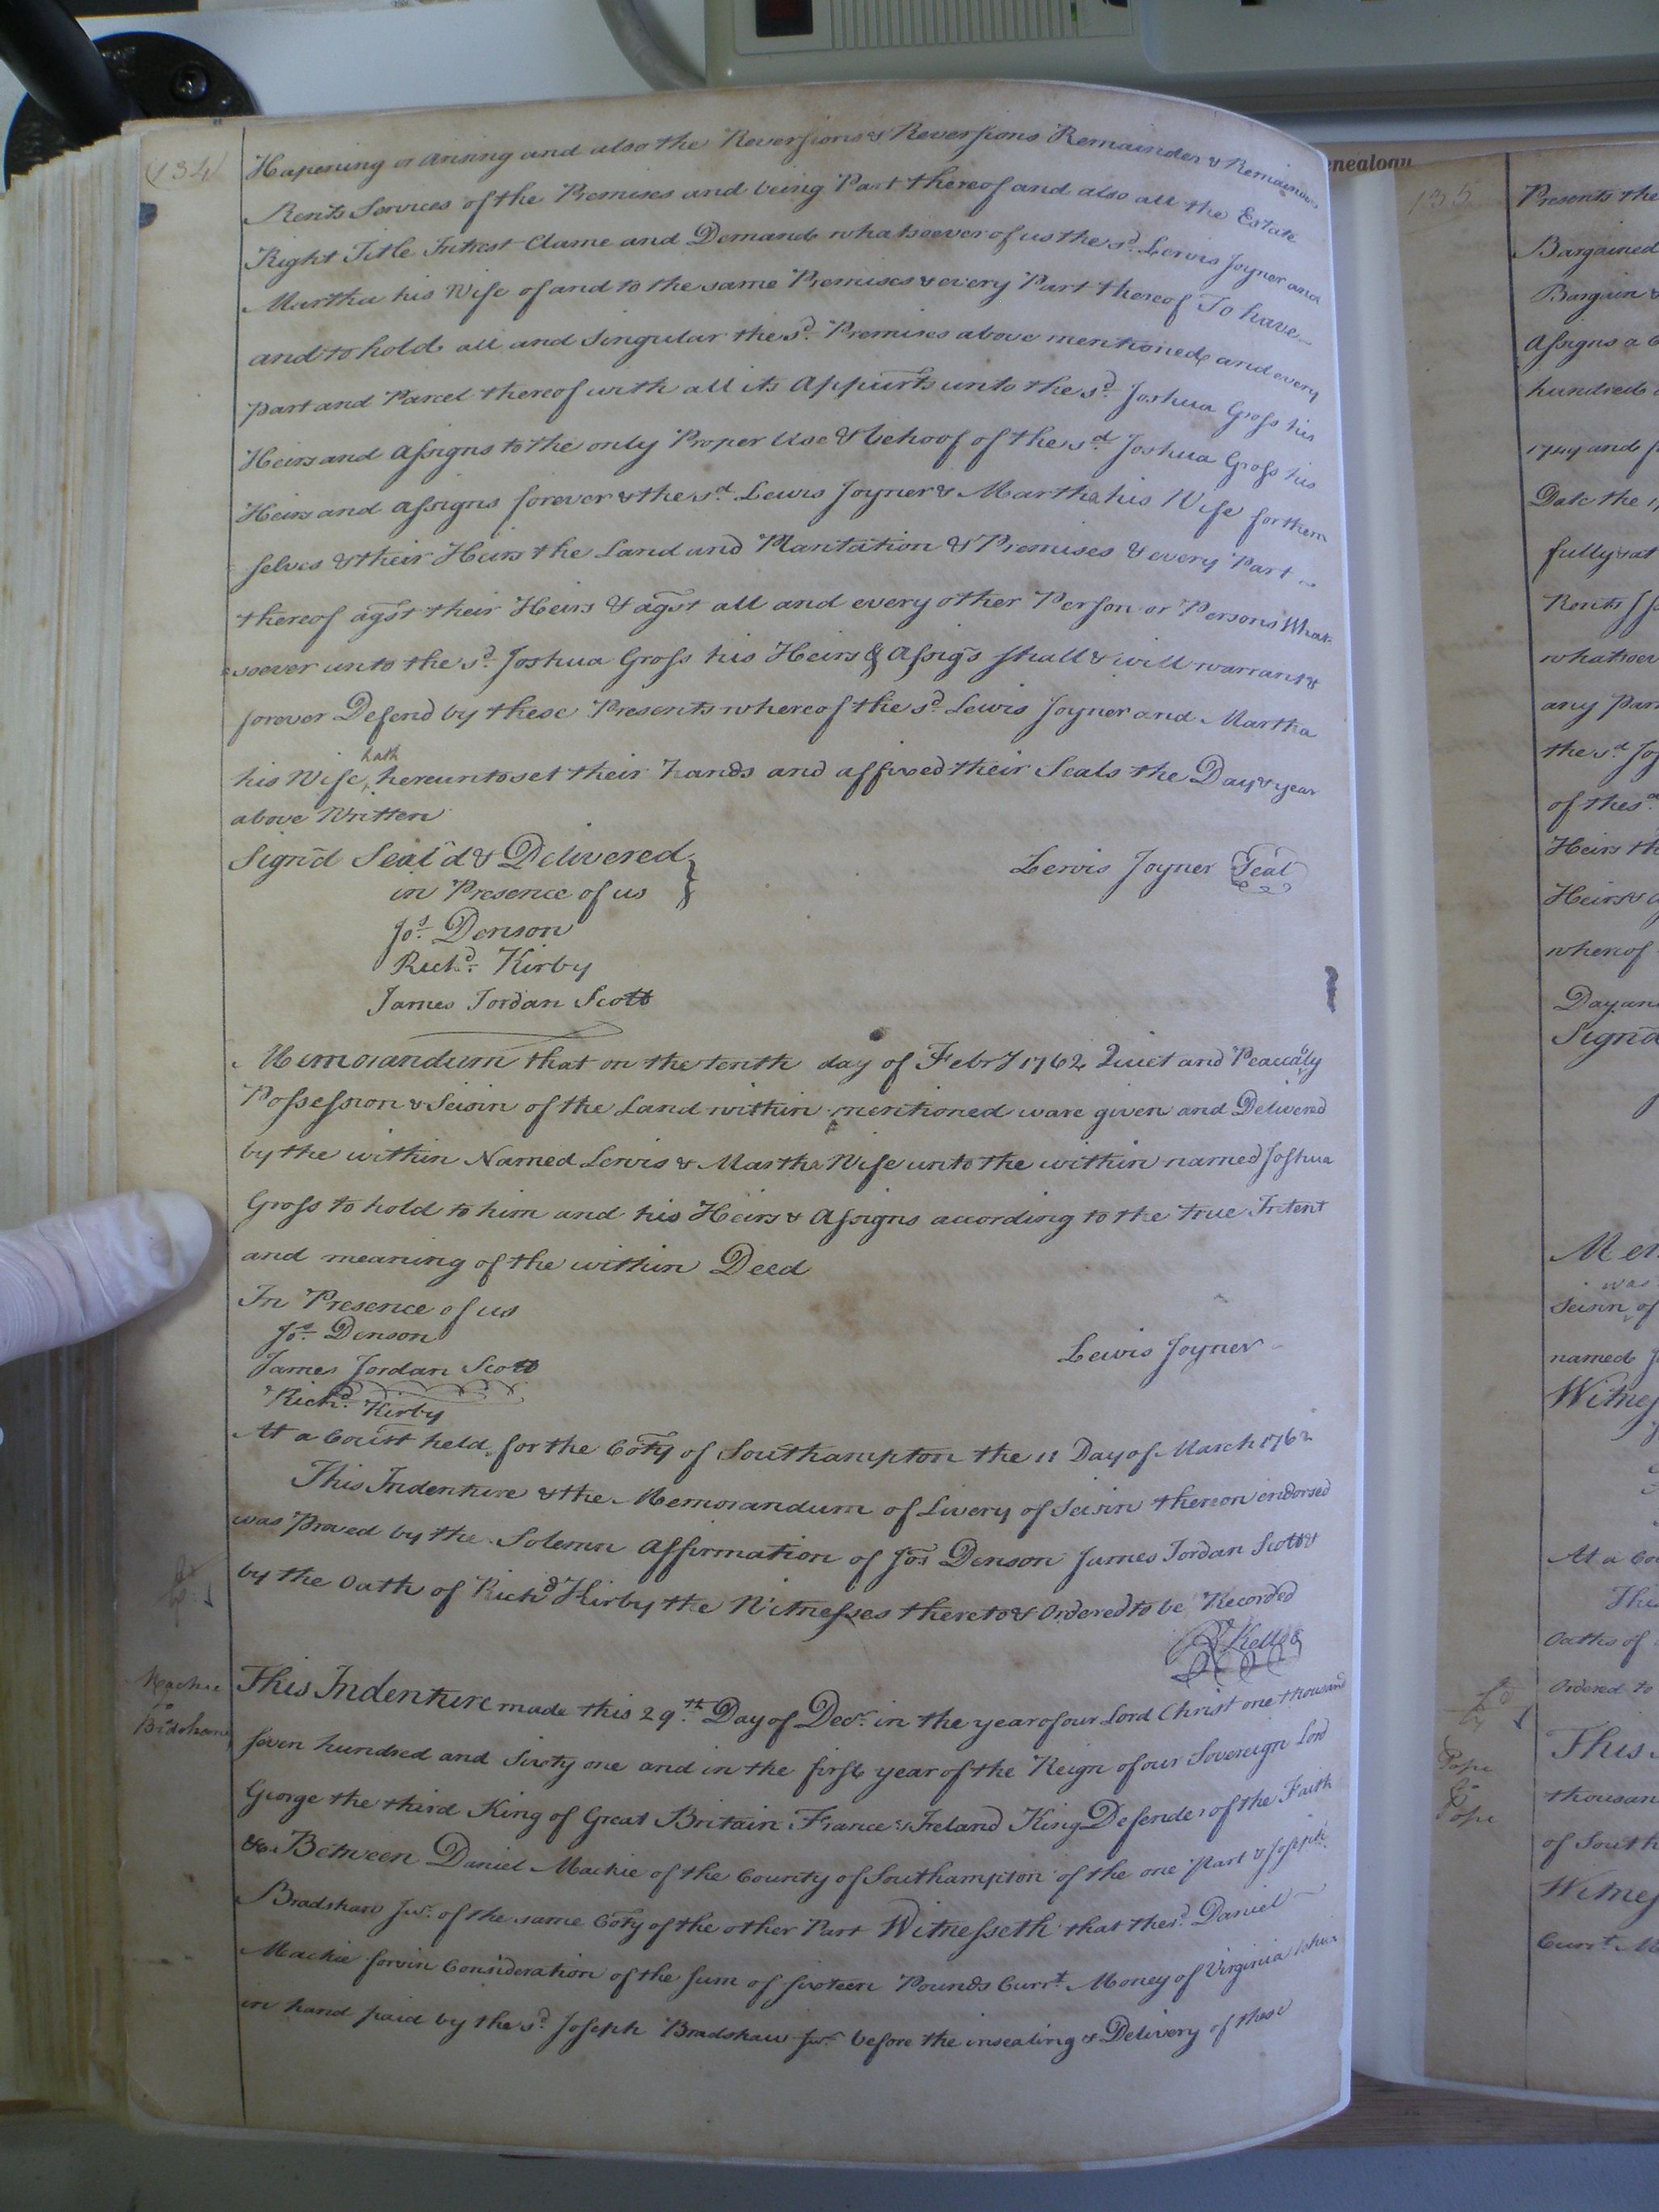 134
Hapening or arising and also the Reversion & Reversions Remainder & Remainders
Rents Services of the Premises and being Part thereof and also all the Estate
Right Title Intrest Clame and Demand whatsoever of us the sd. Lewis Joyner and
Martha his Wife of and to the same Premises & every Part thereof To have
and to hold all and Singular the sd. Premises above mentioned and every
part and Parcel thereof with all its Appurts unto the sd. Joshua Gross his
Heirs and Assigns to the only Proper Use & behoof of the sd. Joshua Gross his
Heirs and assigns forever & the sd. Lewis Joyner & Martha his Wife for them
selves & their Heirs the Land and Plantation & Premises & every Part
thereof agst their Heirs & agst all and every other Person or Persons What
soever unto the sd. Joshua Gross his Heirs & Assigs shall & will warrant &
forever Defend by these Presents whereof the sd. Lewis Joyner and Martha
his Wife hath hereunto set their hands and affixed their Seals the Day & year
above Written
Sign'd Seal'd & Delivered
in Presence of us
Lewis Joyner Seal
Jos. Denson
Richd. Kirby
James Jordan Scott
Memorandum that on the tenth day of Febry 1762 Quiet and Peaceably
Possession & Seisin of the Land within mentioned ware given and Delivered
by the within Named Lewis & Martha Wife unto the within named Joshua
Gross to hold to him and his Heirs & Assigns according to the true Intent
and meaning of the within Deed
In Presence of us
Jos. Denson
Lewis Joyner
James Jordan Scott
Richd. Kirby
At a Court held for the Coty of Southampton the 11 Day of March 1762
This Indenture & the Memorandum of Livery of Seisin thereon endorsed
was Proved by the Solemn Affirmation of Jos Denson James Jordan Scott &
by the Oath of Richd Kirby the Witnesses thereto & Ordered to be Recorded
R Kello
Mackie
to
Bradshaw
This Indenture made this 29th. Day of Decr. in the year of our Lord Christ one thousand
seven hundred and Sixty one and in the first year of the Reign of our Sovereign Lord
George the third King of Great Britain France & Ireland King Defender of the Faith
&c. Between Daniel Mackie of the County of Southampton of the one Part & Joseph
Bradshaw Jur. of the same Coty of the other Part Witnesseth that the sd. Daniel
Mackie for & in Consideration of the sum of sixteen Pounds Currt. Money of Virginia
in hand paid by the sd. Joseph Bradshaw Jur. before the insealing & Delivery of these
enealogy
135
Presents the
Bargained
Bargain &
Assigns a
hundred
1744 and
Date the
fully sat
Rents
whatsoev
any Par
the sd. Jos
of the sd.
Heirs th
Heirs &
whereof
Day an
Sign'd
Mem
was
Seisin of
named J
Witness
At a Co
This
Oaths of
Ordered to
Pope
to
Pope
This
thousan
of South
Witness
Currt. M